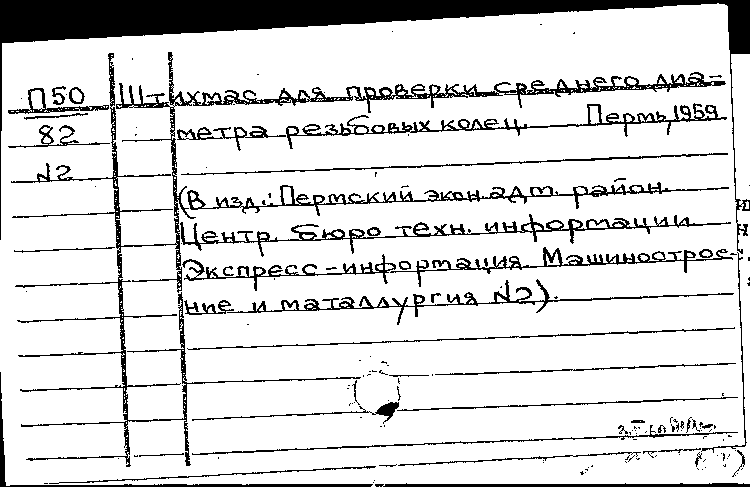 П50 Штихмас для проверки среднего диа-
82 метра резьбовых колец. Пермь, 1959
№2
(В изд.: Пермский экон. адм. район.
Центр. бюро техн. информации
Экспресс-информация. Машинострое-
ние и маталлургия №2).